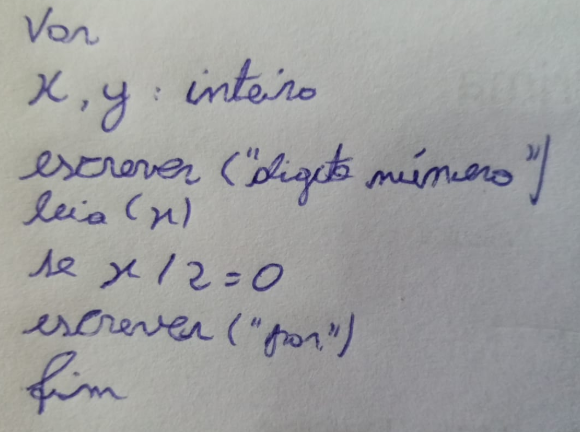 Var
x, y : inteiro
escrever ("digite número")
leia (x)
se x / 2 = 0
escrever ("par")
fim